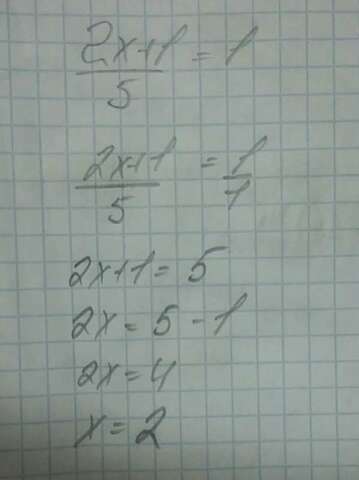 (2x+1)/5 = 1
(2x+1)/5 = 1/1
2x+1 = 5
2x = 5 - 1
2x = 4
x = 2